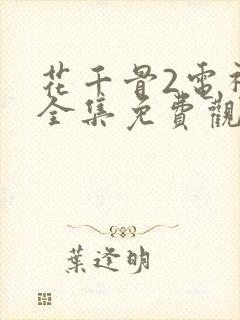 花千骨2電視
全集免費觀
葉逢明